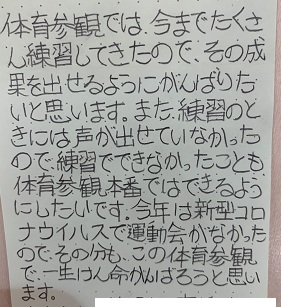 体育参観では、今までたくさ
ん練習してきたので、その成
果を出せるようにがんばりた
いと思います。また、練習のと
きには声が出せていなかった
ので、練習でできなかったことも
体育参観、本番ではできるよう
にしたいです。今年は新型コロ
ナウイルスで運動会がなかった
ので、その分も、この体育参観
で、一生けん命がんばろうと思い
ます。